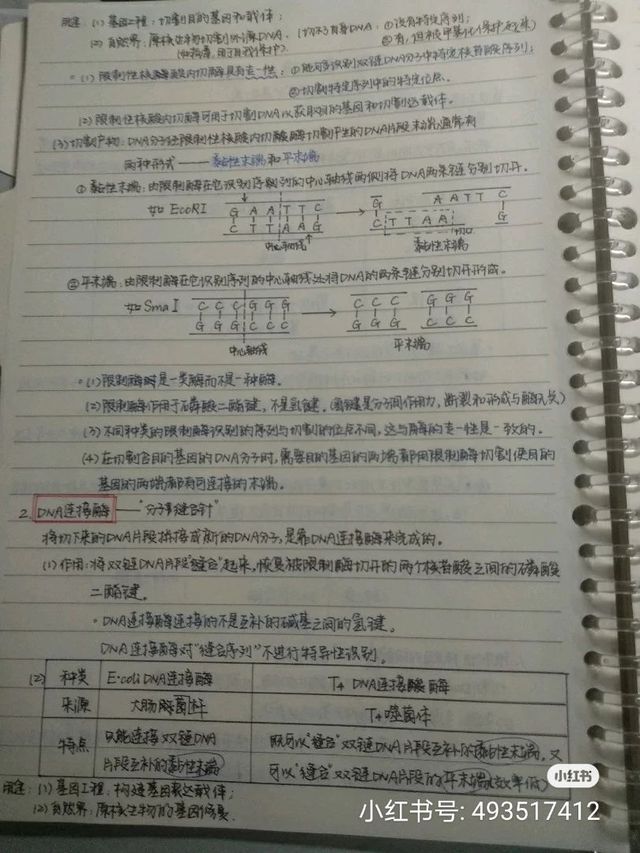 用途：(1) 基因工程：切割目的基因和载体；
(2) 自然界：原核生物切割外源DNA，(切不了自身DNA：①没有特定序列；
②有，但被甲基化保护起来)
(1) 限制性核酸内切酶具有专一性：①能够识别双链DNA分子中特定核苷酸序列；
②切割特定序列中的特定位点。
(2) 限制性核酸内切酶可用于切割DNA以获取目的基因和切割运载体。
(3) 切割产物：DNA分子经限制性核酸内切酶切割产生的DNA片段末端通常有
两种形式——黏性末端和平末端
①黏性末端：由限制酶在它识别序列的中心轴线两侧将DNA两条链分别切开。
如EcoRI
G A A T T C
C T T A A G
中心轴线
G A A T T C
C T T A A G
切口
黏性末端
②平末端：由限制酶在它识别序列的中心轴线处将DNA的两条链分别切开形成。
如Sma I
C C C G G G
G G G C C C
中心轴线
C C C G G G
G G G C C C
平末端
(1) 限制酶是一类酶而不是一种酶。
(2) 限制酶作用于磷酸二酯键，不是氢键。(氢键是分子间作用力，断裂和形成与酶无关)
(3) 不同种类的限制酶识别的序列与切割的位点不同，这与酶的专一性是一致的。
(4) 在切割含目的基因的DNA分子时，需要目的基因的两端都用限制酶切割使目的
基因的两端都有可连接的末端。
2. DNA连接酶——"分子缝合针"
将切下来的DNA片段拼接成新的DNA分子，是靠DNA连接酶来完成的。
(1) 作用：将双链DNA片段"缝合"起来，恢复被限制酶切开的两个核苷酸之间的磷酸
二酯键。
DNA连接酶连接的不是互补的碱基之间的氢键。
DNA连接酶对"缝合序列"不进行特异性识别。
(2) 种类 E·coli DNA连接酶 T4 DNA连接酶
来源 大肠杆菌 T4噬菌体
特点 只能连接双链DNA 既可以"缝合"双链DNA片段互补的黏性末端，又
片段互补的黏性末端 可以"缝合"双链DNA片段的平末端(效率低)
用途：(1) 基因工程：构建基因表达载体；
(2) 自然界：原核生物的基因修复
小红书
小红书号: 493517412